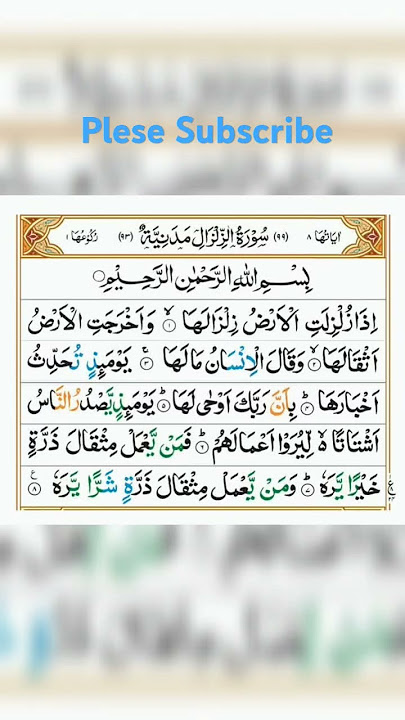 Plese Subscribe
اٰيَاتُهَا ٨ (٩٩) سُوْرَةُ الزِّلْزَالِ مَدَنِيَّةٌ (٩٣) رُكُوْعُهَا ١
بِسْمِ اللّٰهِ الرَّحْمٰنِ الرَّحِيْمِ
اِذَا زُلْزِلَتِ الْاَرْضُ زِلْزَالَهَا ۙ١ وَاَخْرَجَتِ الْاَرْضُ
اَثْقَالَهَا ۙ٢ وَقَالَ الْاِنْسَانُ مَا لَهَا ۚ٣ يَوْمَىِٕذٍ تُحَدِّثُ
اَخْبَارَهَا ۙ٤ بِاَنَّ رَبَّكَ اَوْحٰى لَهَا ؕ٥ يَوْمَىِٕذٍ يَّصْدُرُ النَّاسُ
اَشْتَاتًا ە۬ۙ لِّيُرَوْا اَعْمَالَهُمْ ؕ٦ فَمَنْ يَّعْمَلْ مِثْقَالَ ذَرَّةٍ
خَيْرًا يَّرَهٗ ؕ٧ وَمَنْ يَّعْمَلْ مِثْقَالَ ذَرَّةٍ شَرًّا يَّرَهٗ ࣖ٨